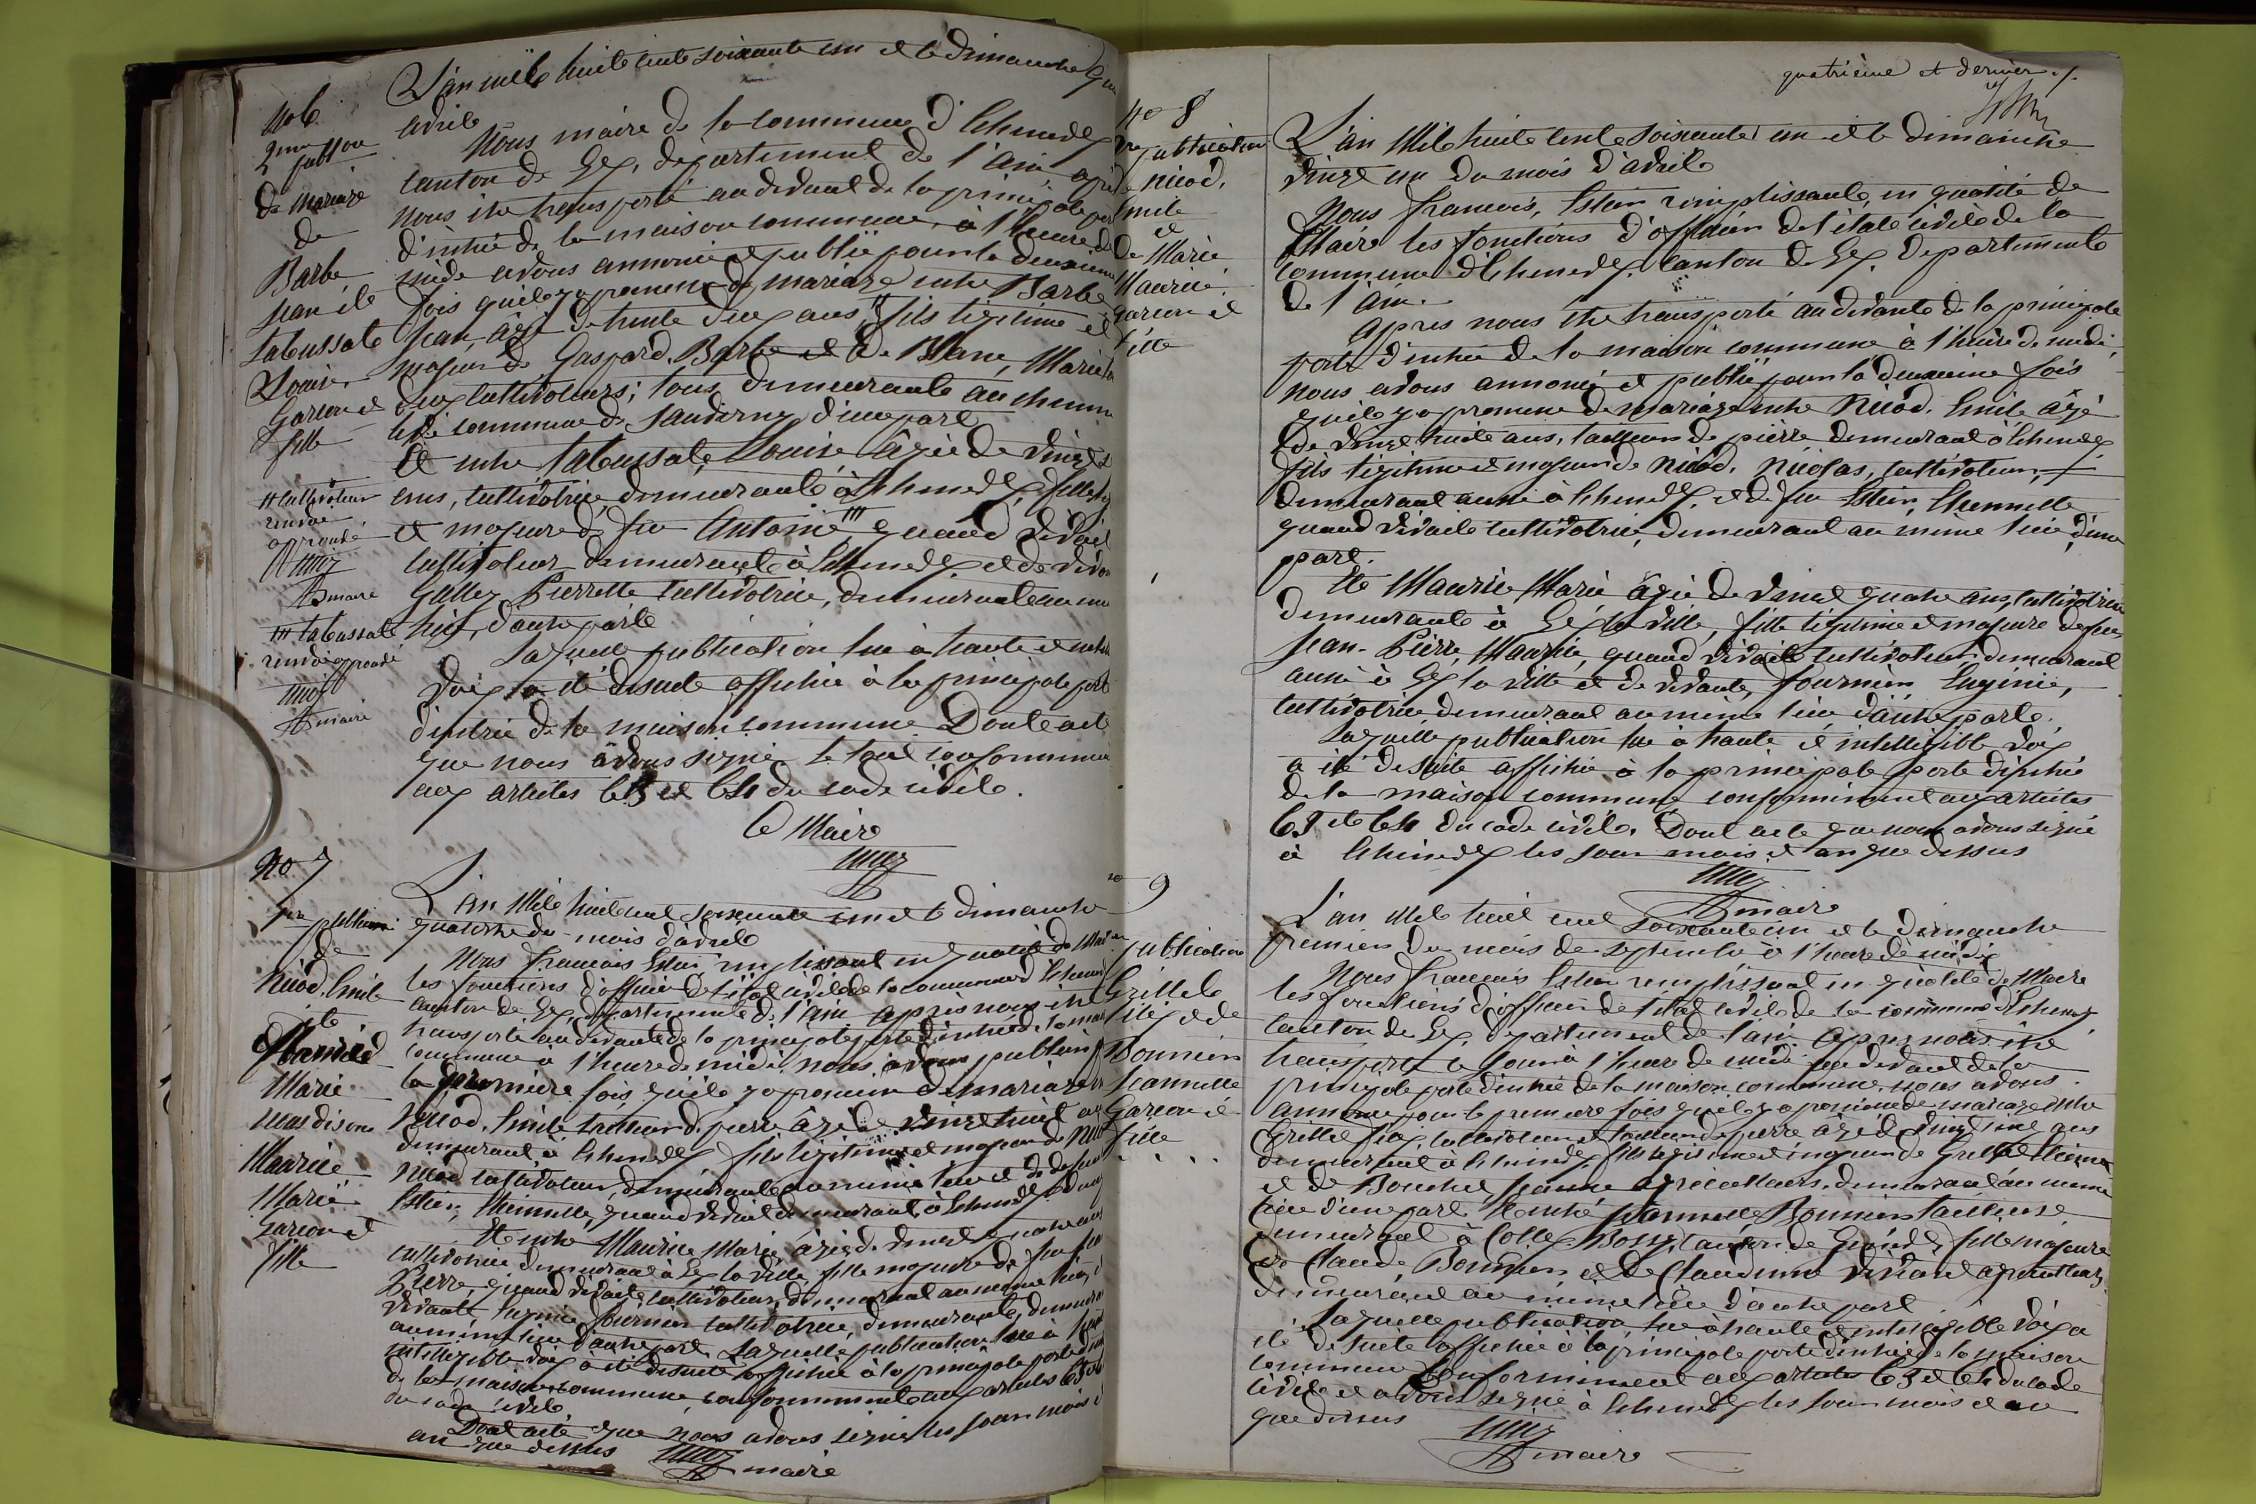 No 6
2me publion
de mariage
de
Barbe
Jean et
Labussate
Louise
Garçon et
fille
L'an mil huit cent soixante un et le Dimanche
avril
Nous maire de la commune d'Echenevex
canton de Gex, département de l'ain
nous être transporté au devant de la principale
d'entrée de la maison commune, à l'heure de
midi avons annoncé et publié pour la deuxième
fois qu'il y a promesse de mariage entre Barbe
Jean âgé de trente deux ans, fils légitime et
majeur de Gaspard Barbe et de Blanc, Marie
deux cultivateurs; tous demeurant au
commune de Sauverny d'une part
Et entre Labussate Louise âgée de vingt
ans, cultivatrice demeurant à Echenevex, fille
et majeure de feu Antoine quand vivait
cultivateur demeurant à Echenevex, et de
Pierrette cultivatrice, demeurant au
lieu, d'autre part
Laquelle publication lue à haute et
voix a été de suite affichée à la principale porte
d'entrée de la maison commune. Dont acte
que nous avons signé le tout conformément
aux articles 63 et 64 du code civil.
Le Maire
cultivateur
renvoi
approuvé
maire
Labussate
renvoi approuvé
maire
No 7
1re publion
de
Nicod, Emile
et
Marie
nous disons
Maurice
Marie
Garçon et
fille
L'an Mil huit cent soixante un et le dimanche
quatorze du mois d'avril
Nous François Estier remplissant en qualité de Maire
les fonctions d'officier de l'état civil de la commune d'Echenevex
canton de Gex, département de l'ain après nous être
transporté au devant de la principale porte d'entrée de la
commune à l'heure de midi, nous avons publié
la première fois qu'il y a promesse de mariage
Nicod, Emile tailleur de pierre âgé de vingt huit
demeurant à Echenevex fils légitime et majeur de
Nicod cultivateur, demeurant au même lieu et de
Estier, Etiennette, quand vivait demeurant à Echenevex
Et entre Maurice Marie âgée de vingt quatre ans
cultivatrice demeurant à Gex la ville fille majeure de feu
Pierre, quand vivait cultivateur, demeurant au même lieu,
vivante, Eugénie Fournier cultivatrice, demeurant
au même lieu d'autre part. Laquelle publication lue à
intelligible voix a été de suite affichée à la principale porte
de la maison commune, conformément aux articles 63
du code civil
Dont acte que nous avons signé les jour mois
an que dessus
maire
quatrième et dernier
No 8
publication
Nicod,
Emile
et
de Marie
Maurice
garçon et
fille
L'an Mil huit cent soixante un et le dimanche
vingt un du mois d'avril
Nous François, Estier remplissant, en qualité de
Maire les fonctions d'officier de l'état civil de la
commune d'Echenevex, canton de Gex, département
de l'ain.
Après nous être transporté au devant de la principale
porte d'entrée de la maison commune à l'heure de midi
nous avons annoncé et publié pour la deuxième fois
qu'il y a promesse de mariage entre Nicod, Emile âgé
de vingt huit ans, tailleur de pierre demeurant à Echenevex
fils légitime et majeur de Nicod, Nicolas, cultivateur,
demeurant aussi à Echenevex, et de feu Estier, Etiennette
quand vivait cultivatrice, demeurant au même lieu, d'une
part.
Et Maurice Marie âgée de vingt quatre ans, cultivatrice
demeurant à Gex la ville, fille légitime et majeure de feu
Jean-Pierre, Maurice, quand vivait cultivateur demeurant
aussi à Gex la ville et de vivante, Fournier Eugénie,
cultivatrice, demeurant au même lieu d'autre part.
Laquelle publication lue à haute et intelligible voix
a été de suite affichée à la principale porte d'entrée
de la maison commune conformément aux articles
63 et 64 du code civil. Dont acte que nous avons signé
à Echenevex les jour mois et an que dessus
maire
9
publication
Grillet
et de
Bonnier
Jeannette
Garçon et
fille
L'an Mil huit cent soixante un et le dimanche
premier du mois de septembre à l'heure de midi
Nous François Estier remplissant en qualité de Maire
les fonctions d'officier de l'état civil de la commune d'Echenevex
canton de Gex, département de l'ain. Après nous être
transporté le jour à l'heure de midi au devant de la
principale porte d'entrée de la maison commune, nous avons
annoncé pour la première fois qu'il y a promesse de mariage entre
Grillet cultivateur et tailleur de pierre âgé de vingt ans
demeurant à Echenevex, fils légitime et majeur de Grillet
et de Bouchet Jeanne agriculteurs, demeurant au même
lieu d'une part. Et entre Jeannette Bonnier tailleuse
demeurant à Collex-Bossy, canton de Genève fille majeure
de Claude Bonnier et de Claudine vivant agriculteurs
demeurant au même lieu d'autre part
Laquelle publication lue à haute et intelligible voix a
été de suite affichée à la principale porte d'entrée de la maison
commune conformément aux articles 63 et 64 du code
civil et avons signé à Echenevex les jour mois et an
que dessus
maire